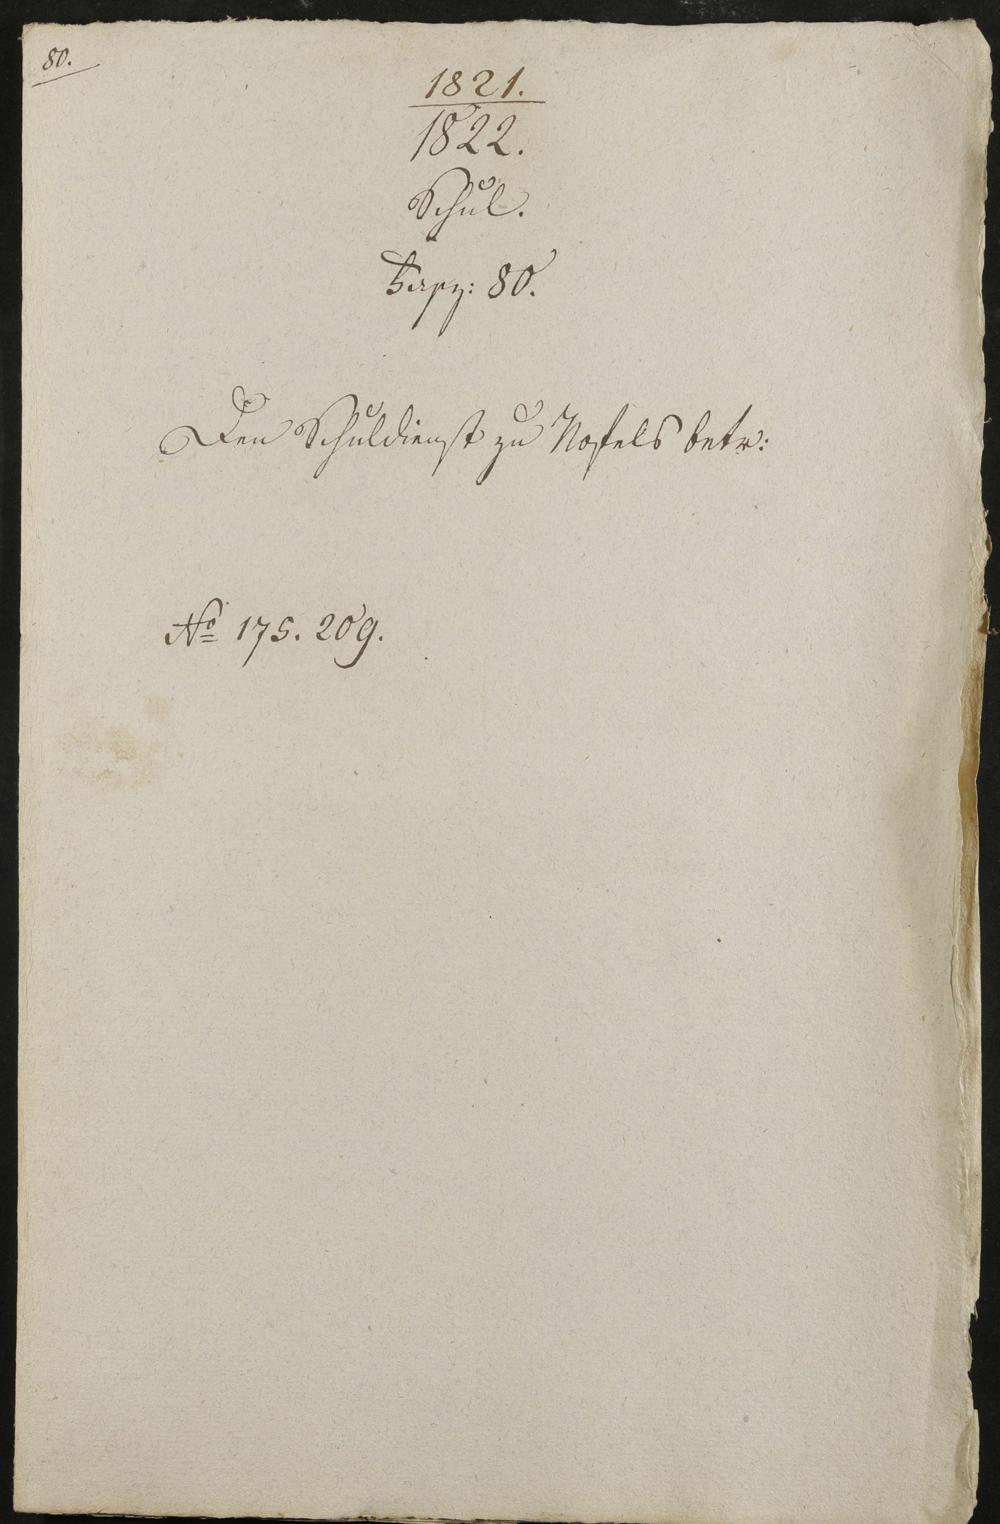 80.
1821.
1822.
Schul.
Fasz: 80.
Den Schuldienst zu Nofels betr:
No 175. 209.